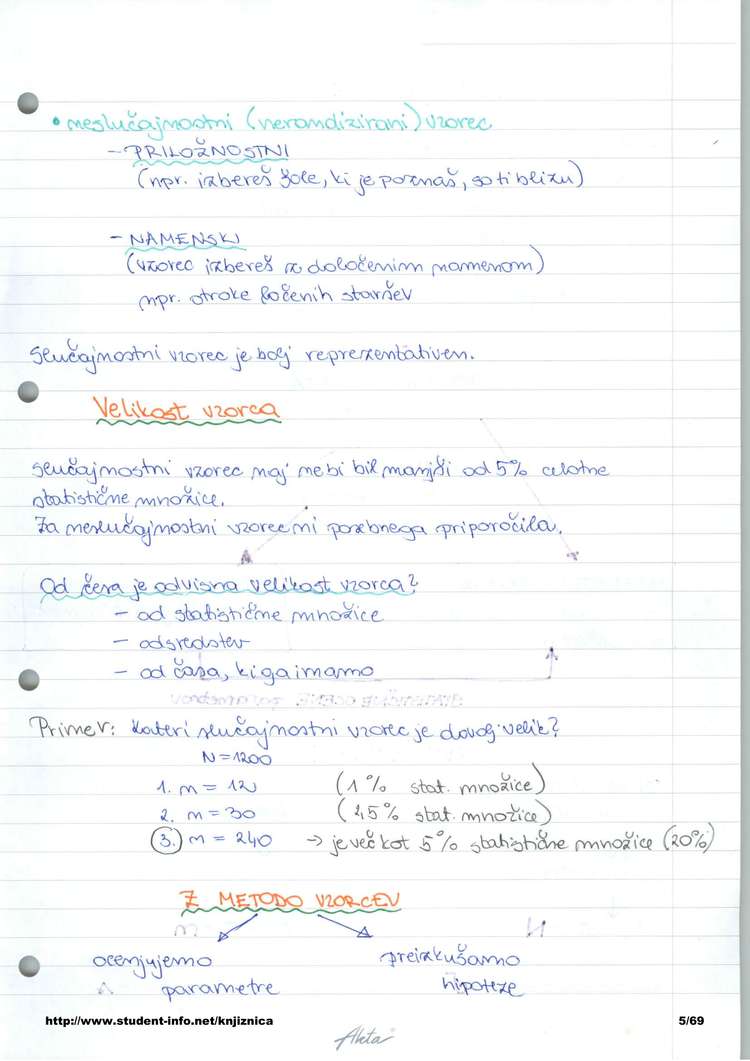 • neslučajnostni (nerandizirani) vzorec
- PRILOŽNOSTNI
(npr. izbereš šole, ki je poznaš, so ti blizu)
- NAMENSKI
(vzorec izbereš z določenim namenom)
npr. otroke ločenih staršev
Slučajnostni vzorec je bolj reprezentativen.
Velikost vzorca
Slučajnostni vzorec naj nebi bil manjši od 5% celotne
statistične množice.
Za neslučajnostni vzorec ni posebnega priporočila.
Od česa je odvisna velikost vzorca?
- od statistične množice
- od sredstev
- od časa, ki ga imamo
Primer: kateri slučajnostni vzorec je dovolj velik?
N = 1200
1. n = 12 (1% stat. množice)
2. n = 30 (2,5% stat. množice)
3. n = 240 → je več kot 5% statistične množice (20%)
Z METODO VZORCEV
ocenjujemo preizkušamo
parametre hipoteze
http://www.student-info.net/knjiznica 5/69